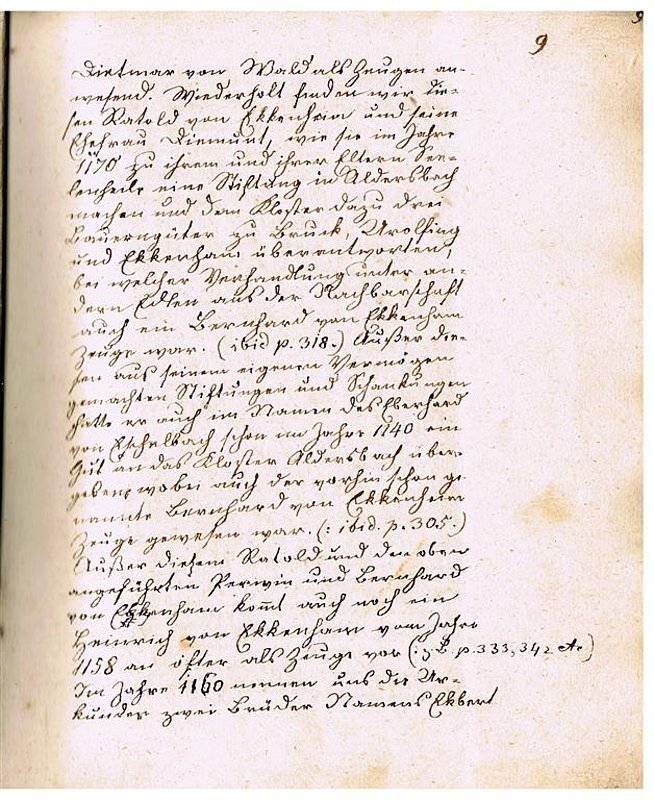 9
Dietmar von Wald als Zeugen an-
wesend. Wiederholt finden wir die-
sen Ratold von Ekkenham und seine
Ehefrau Diemunt, wie sie im Jahre
1170 zu ihrem und ihrer Eltern See-
lenheile eine Stiftung in Aldersbach
machen und dem Kloster dazu drei
Bauerngüter zu Bruck, Urolfing
und Ekkenham überantworten,
bei welcher Verhandlung unter an-
dern Edlen aus der Nachbarschaft
auch ein Bernhard von Ekkenham
Zeuge war. (ibid p. 318.) Außer die-
sen aus seinem eigenen Vermögen
gemachten Stiftungen und Schankungen
hatte er auch im Namen des Eberhard
von Eschelbach schon im Jahre 1140 ein
Gut an das Kloster Aldersbach über-
geben, wobei auch der vorhin schon ge-
nannte Bernhard von Ekkenheim
Zeuge gewesen war. (: ibid. p. 305.)
Außer diesem Ratold und den oben
angeführten Perwin und Bernhard
von Ekkenham komt auch noch ein
Heinrich von Ekkenham vom Jahre
1158 an öfter als Zeuge vor (: z. B. p. 333, 342 etc)
Im Jahre 1160 nennen uns die Ur-
kunden zwei Brüder Namens Ekbert